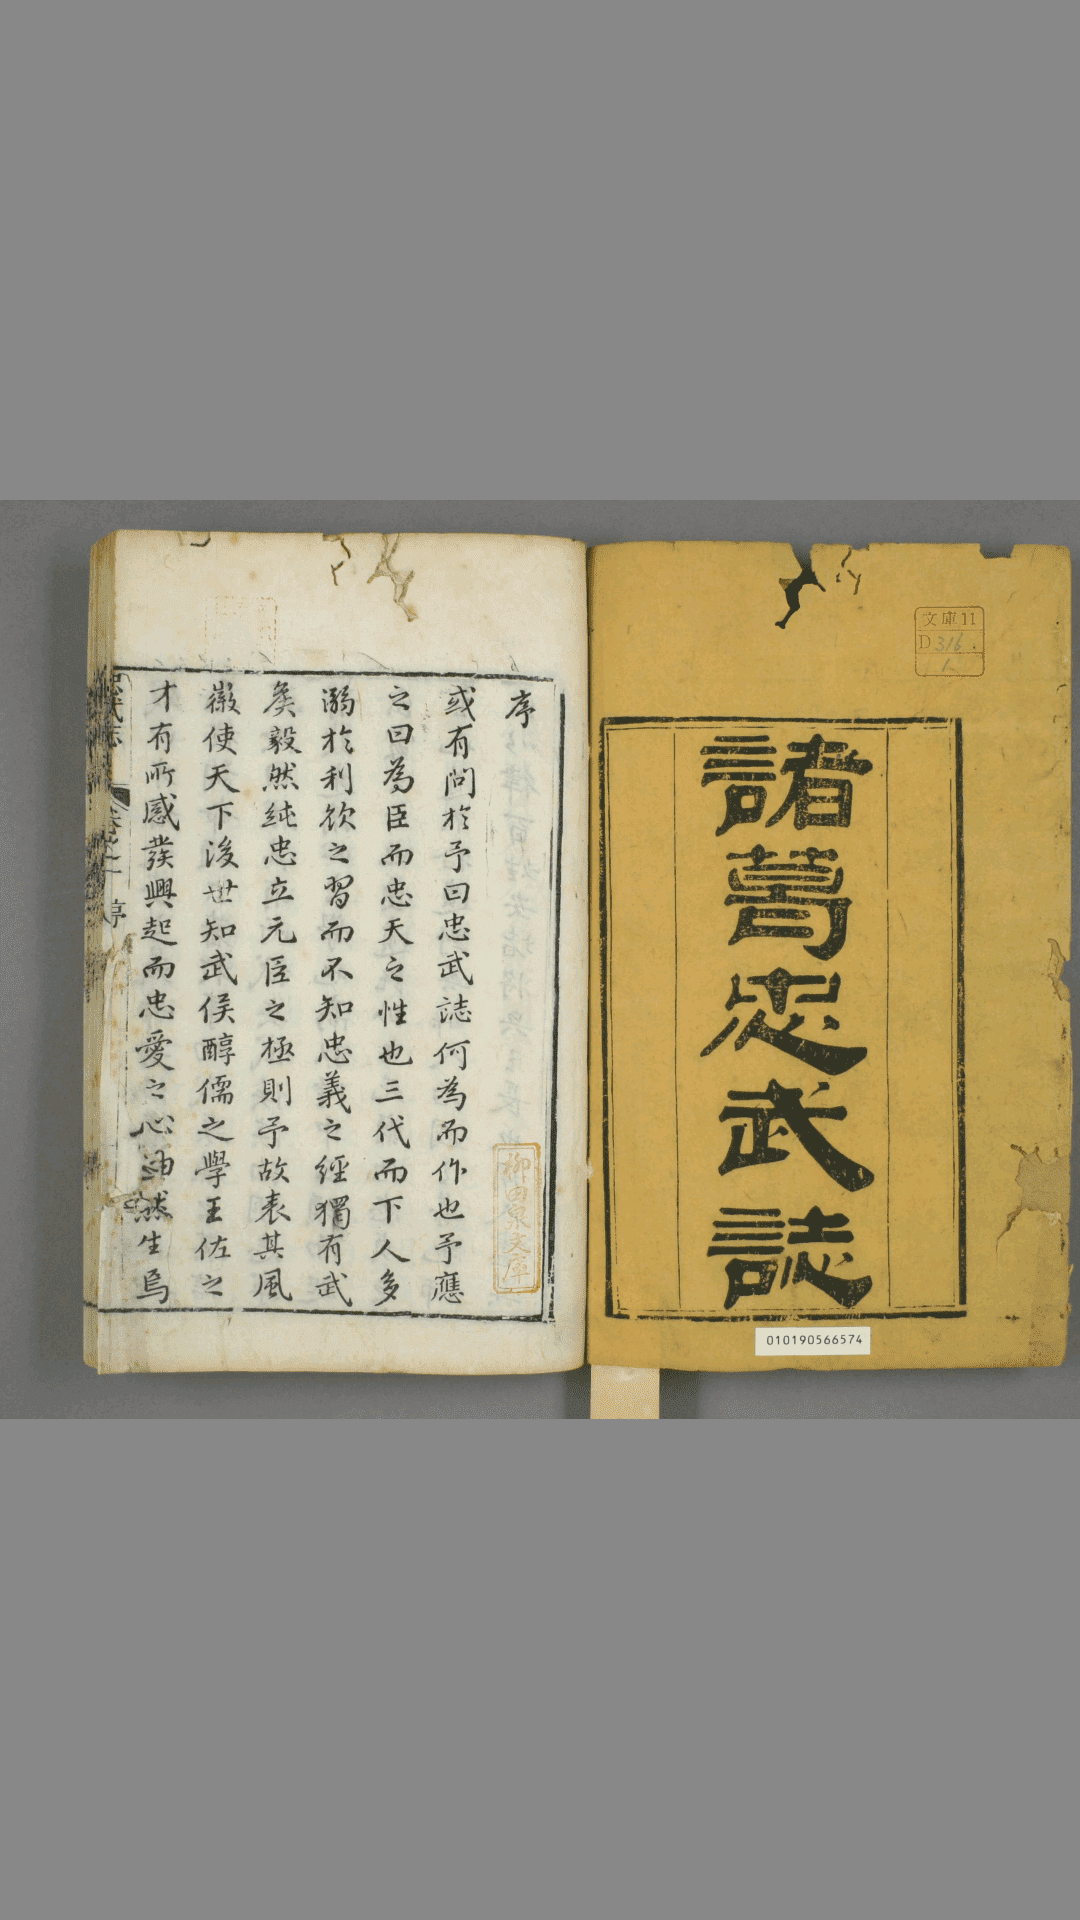 諸葛忠武誌
文庫11
D316
1
010190566574
序
或有問於予曰忠武誌何為而作也予應
之曰為臣而忠天之性也三代而下人多
溺於利欲之習而不知忠義之經獨有武
矦毅然純忠立元臣之極則予故表其風
徽使天下後世知武侯醇儒之學王佐之
才有所感發興起而忠愛之心油然生焉
柳田泉文庫
忠武誌
卷之一
序